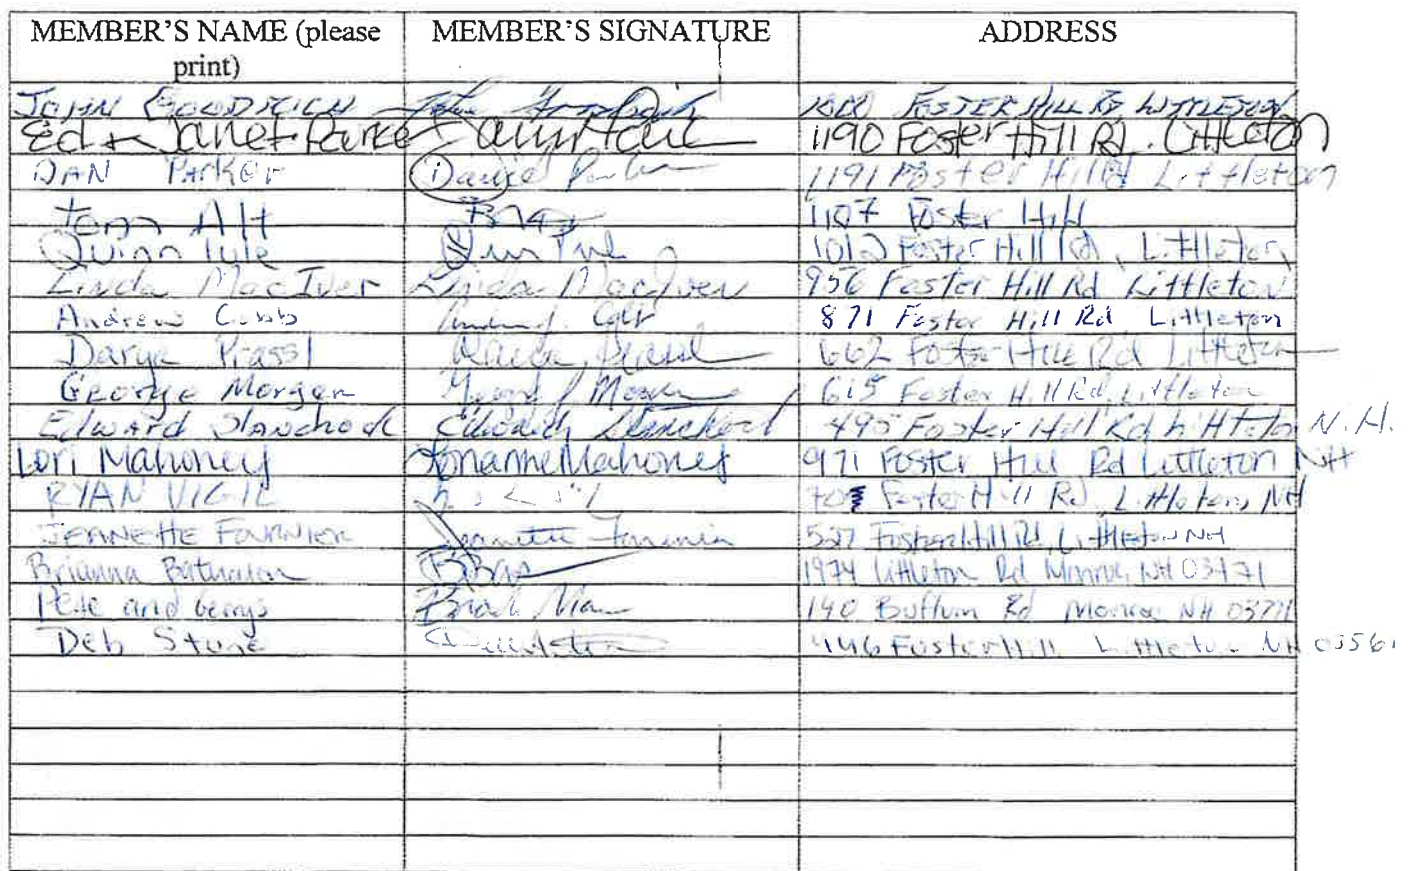 MEMBER'S NAME (please print) MEMBER'S SIGNATURE ADDRESS
JOHN GOODRICH John Goodrich FOSTER HILL RD LITTLETON
Ed & Janet Parke 1190 Foster Hill Rd. Littleton
DAN PARKER Daniel Parker 1191 Foster Hill Rd Littleton
Tom Alt 1107 Foster Hill
Quinn 1012 Foster Hill Rd, Littleton
Linda MacIver Linda MacIver 956 Foster Hill Rd Littleton
Andrew Cobb 871 Foster Hill Rd Littleton
Darya Prassl 662 Foster Hill Rd Littleton
George Morgan 615 Foster Hill Rd, Littleton
Edward Stanchock Edward Stanchock 495 Foster Hill Rd Littleton N.H.
Lori Mahoney Loriann Mahoney 971 Foster Hill Rd Littleton NH
RYAN VIGIL Foster Hill Rd, Littleton, NH
JEANETTE FOURNIER Jeanette Fournier 527 Foster Hill Rd, Littleton NH
Brianna 1974 Littleton Rd Monroe, NH 03771
Pete and 140 Buffum Rd Monroe NH 03771
Deb Stone 446 Foster Hill Littleton NH 03561